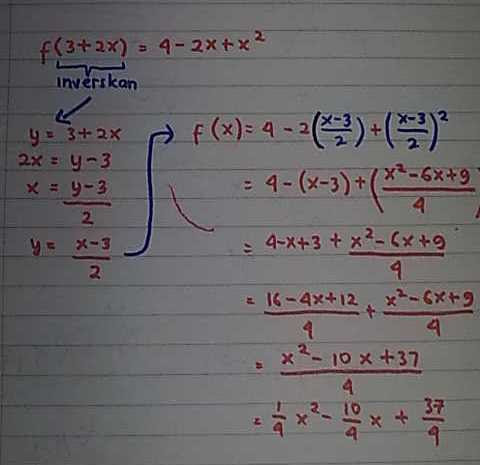 f(3+2x) = 4-2x+x²
inverskan
y = 3+2x
2x = y-3
x = y-3/2
y = x-3/2
f(x) = 4-2(x-3/2)+(x-3/2)²
= 4-(x-3)+(x²-6x+9/4)
= 4-x+3+x²-6x+9/4
= 16-4x+12/4+x²-6x+9/4
= x²-10x+37/4
= 1/4x²-10/4x+37/4